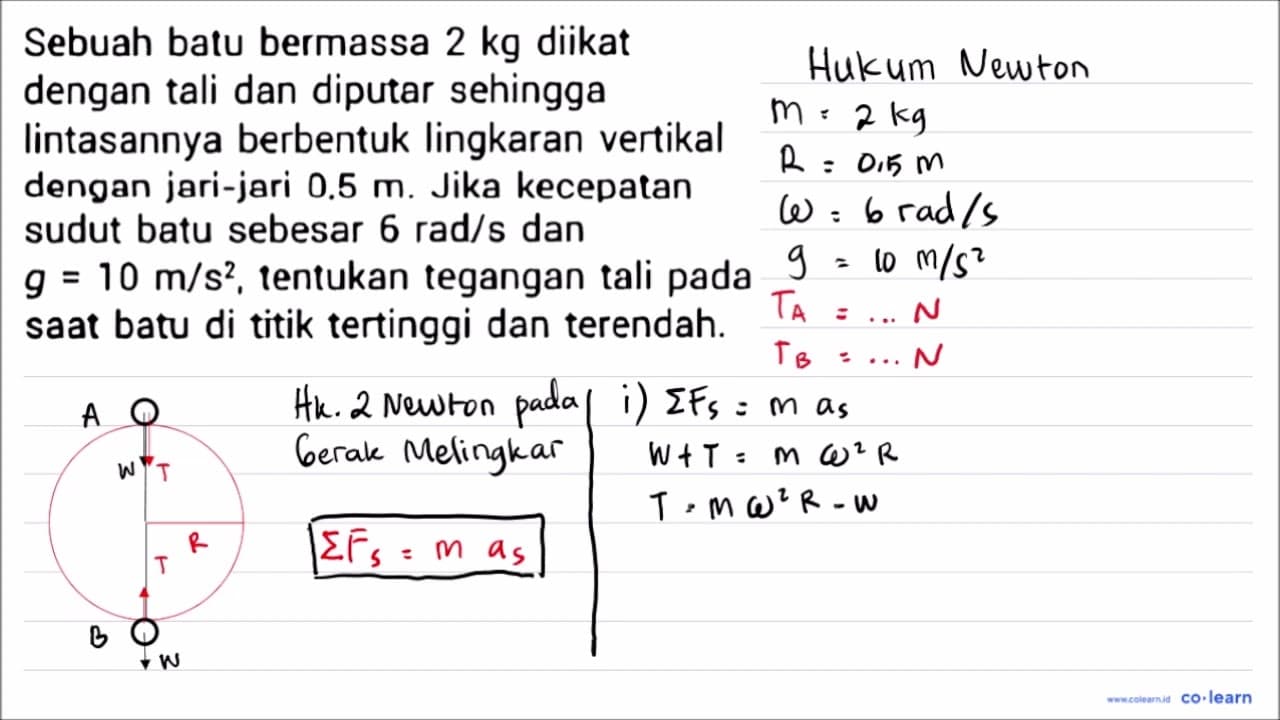 Sebuah batu bermassa 2 kg diikat
dengan tali dan diputar sehingga
lintasannya berbentuk lingkaran vertikal
dengan jari-jari 0,5 m. Jika kecepatan
sudut batu sebesar 6 rad/s dan
g = 10 m/s², tentukan tegangan tali pada
saat batu di titik tertinggi dan terendah.
Hukum Newton
m = 2 kg
R = 0,5 m
ω = 6 rad/s
g = 10 m/s²
T_A = ... N
T_B = ... N
A
W T
R
T
B
W
Hk. 2 Newton pada
Gerak Melingkar
ΣF_s = m a_s
i) ΣF_s = m a_s
W + T = m ω² R
T = m ω² R - W
www.colearn.id co·learn